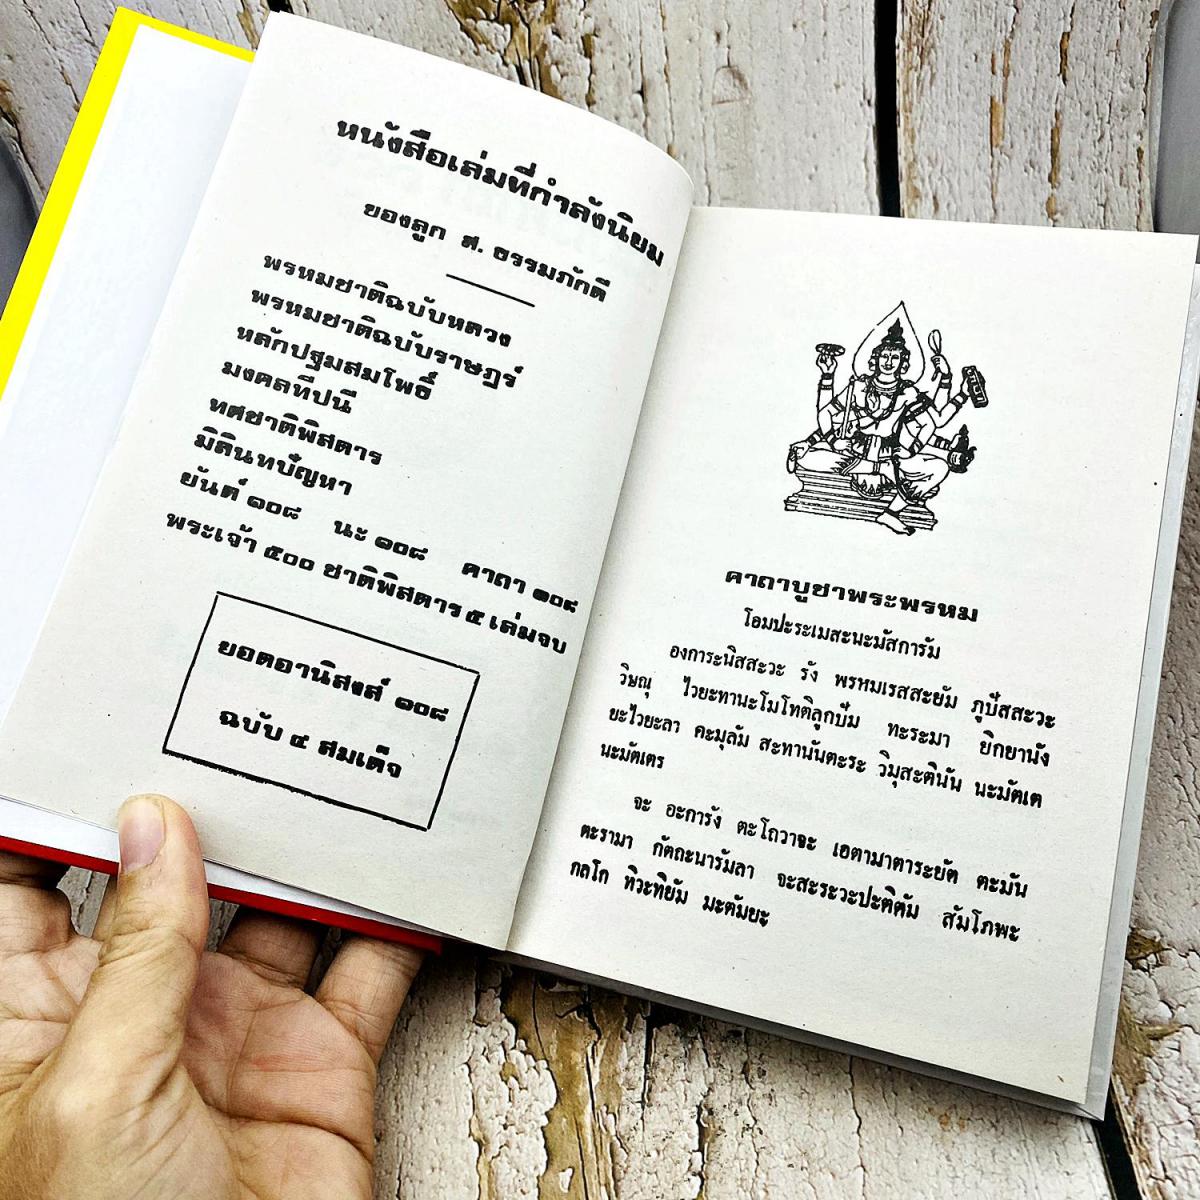 หนังสือเล่มที่กำลังนิยม
ของลูก ส. ธรรมภักดี
พรหมชาติฉบับหลวง
พรหมชาติฉบับราษฎร์
หลักปฐมสมโพธิ์
มงคลทีปนี
ทศชาติพิสดาร
มิลินทปัญหา
ยันต์ ๑๐๘ นะ ๑๐๘ คาถา ๑๐๘
พระเจ้า ๕๐๐ ชาติพิสดาร ๕ เล่มจบ
ยอดอานิสงส์ ๑๐๘
ฉบับ ๔ สมเด็จ
คาถาบูชาพระพรหม
โอมปะระเมสะนะมัสการัม
องการะนิสสะวะ รัง พรหมเรสสะยัม ภูปัสสะวะ
วิษณุ ไวยะทานะโมโทติลูกปัม ทะระมา ยิกยานัง
ยะไวยะลา คะมุลัม สะทานันตะระ วิมุสะตินัน นะมัตเต
นะมัตเตร
จะ อะการัง ตะโถวาจะ เอตามาตาระยัต ตะมัน
ตะรามา กัตถะนารัมลา จะสะระวะปะติตัม สัมโภพะ
กลโก ทิวะทิยัม มะตัมยะ